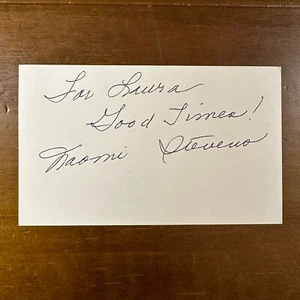 For Laura
Good Times!
Naomi Stevens